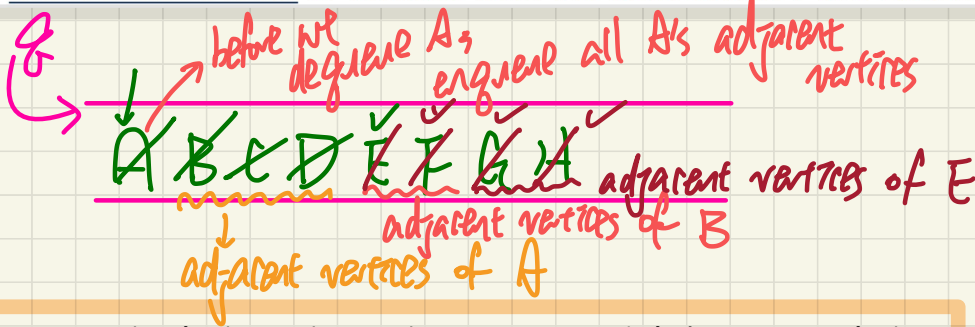 q
before we dequeue A, enqueue all A's adjacent vertices
A B C D E F G H
adjacent vertices of E
adjacent vertices of B
adjacent vertices of A